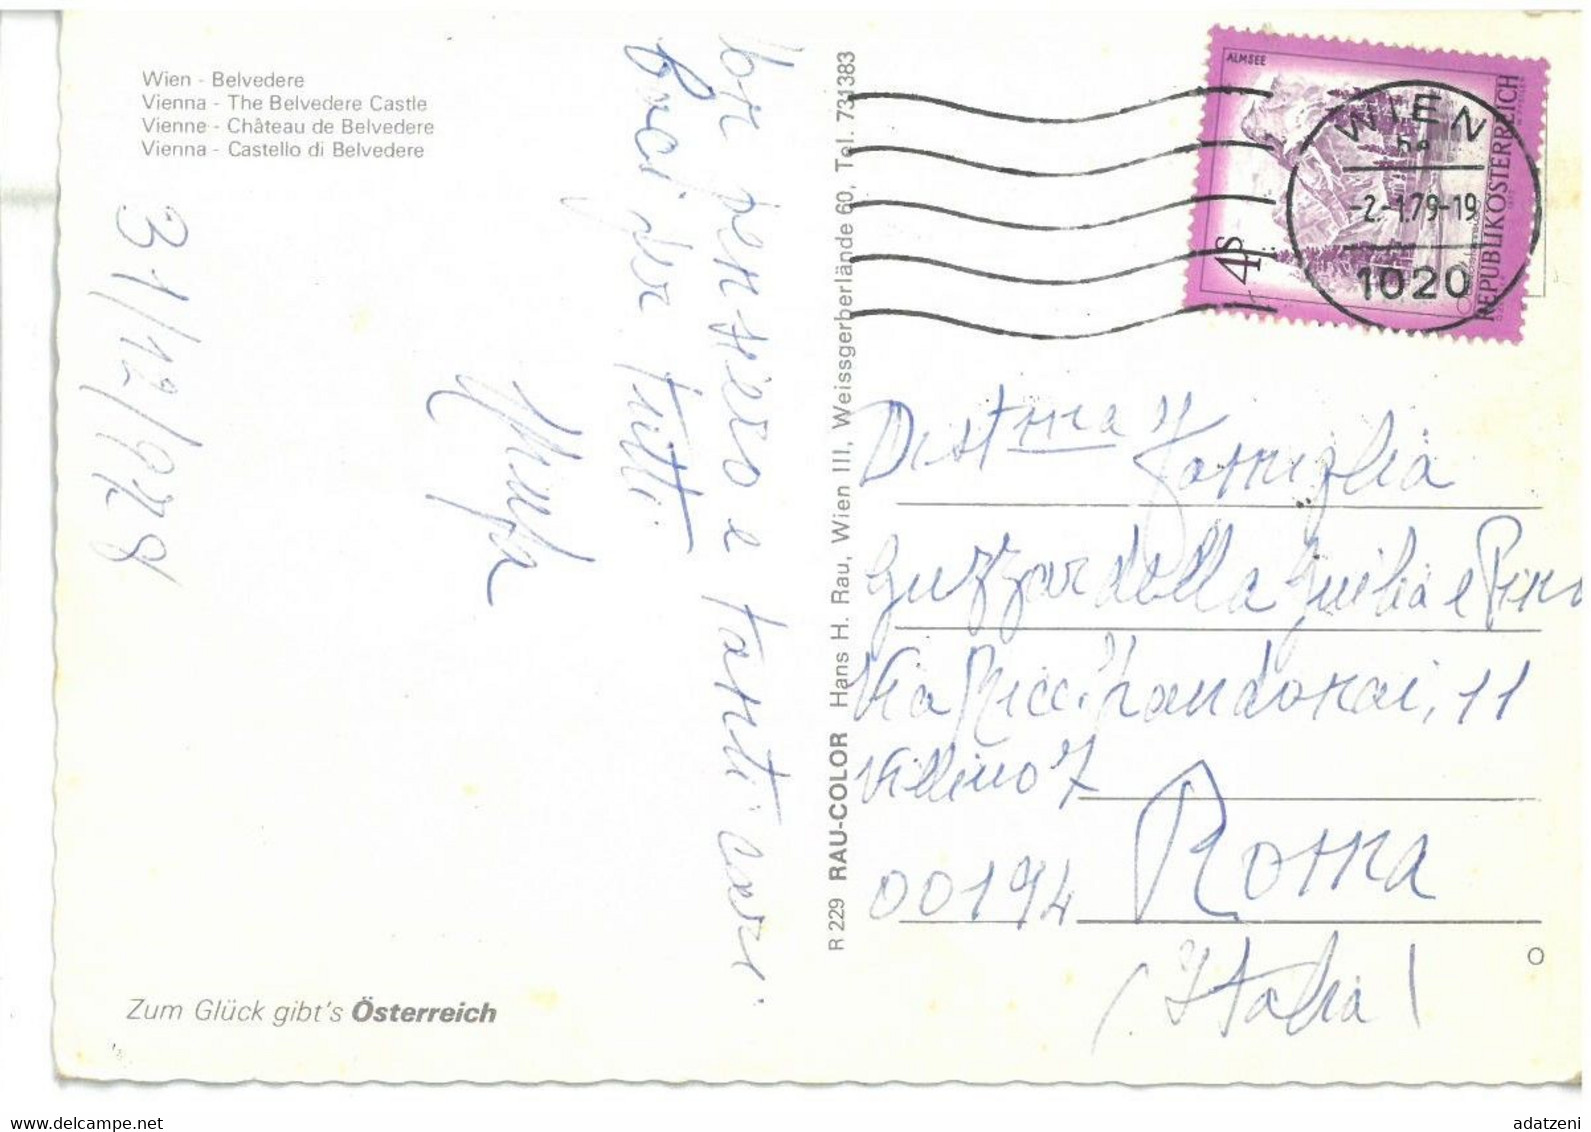 Wien - Belvedere
Vienna - The Belvedere Castle
Vienne - Château de Belvedere
Vienna - Castello di Belvedere
31/12/978
pensiero e tanti cari
baci per tutti
Zum Glück gibt's Österreich
R 229 RAU-COLOR Hans H. Rau, Wien III, Weissgerberlände 60, Tel. 731383
ALMSEE
4S
REPUBLIK ÖSTERREICH
WIEN
-2.-1.79-19
1020
Dist.ma Famiglia
Guzzardella Giulia e Pino
Via 11
Villino 7
00194 Roma
(Italia)
www.delcampe.net
adatzeni